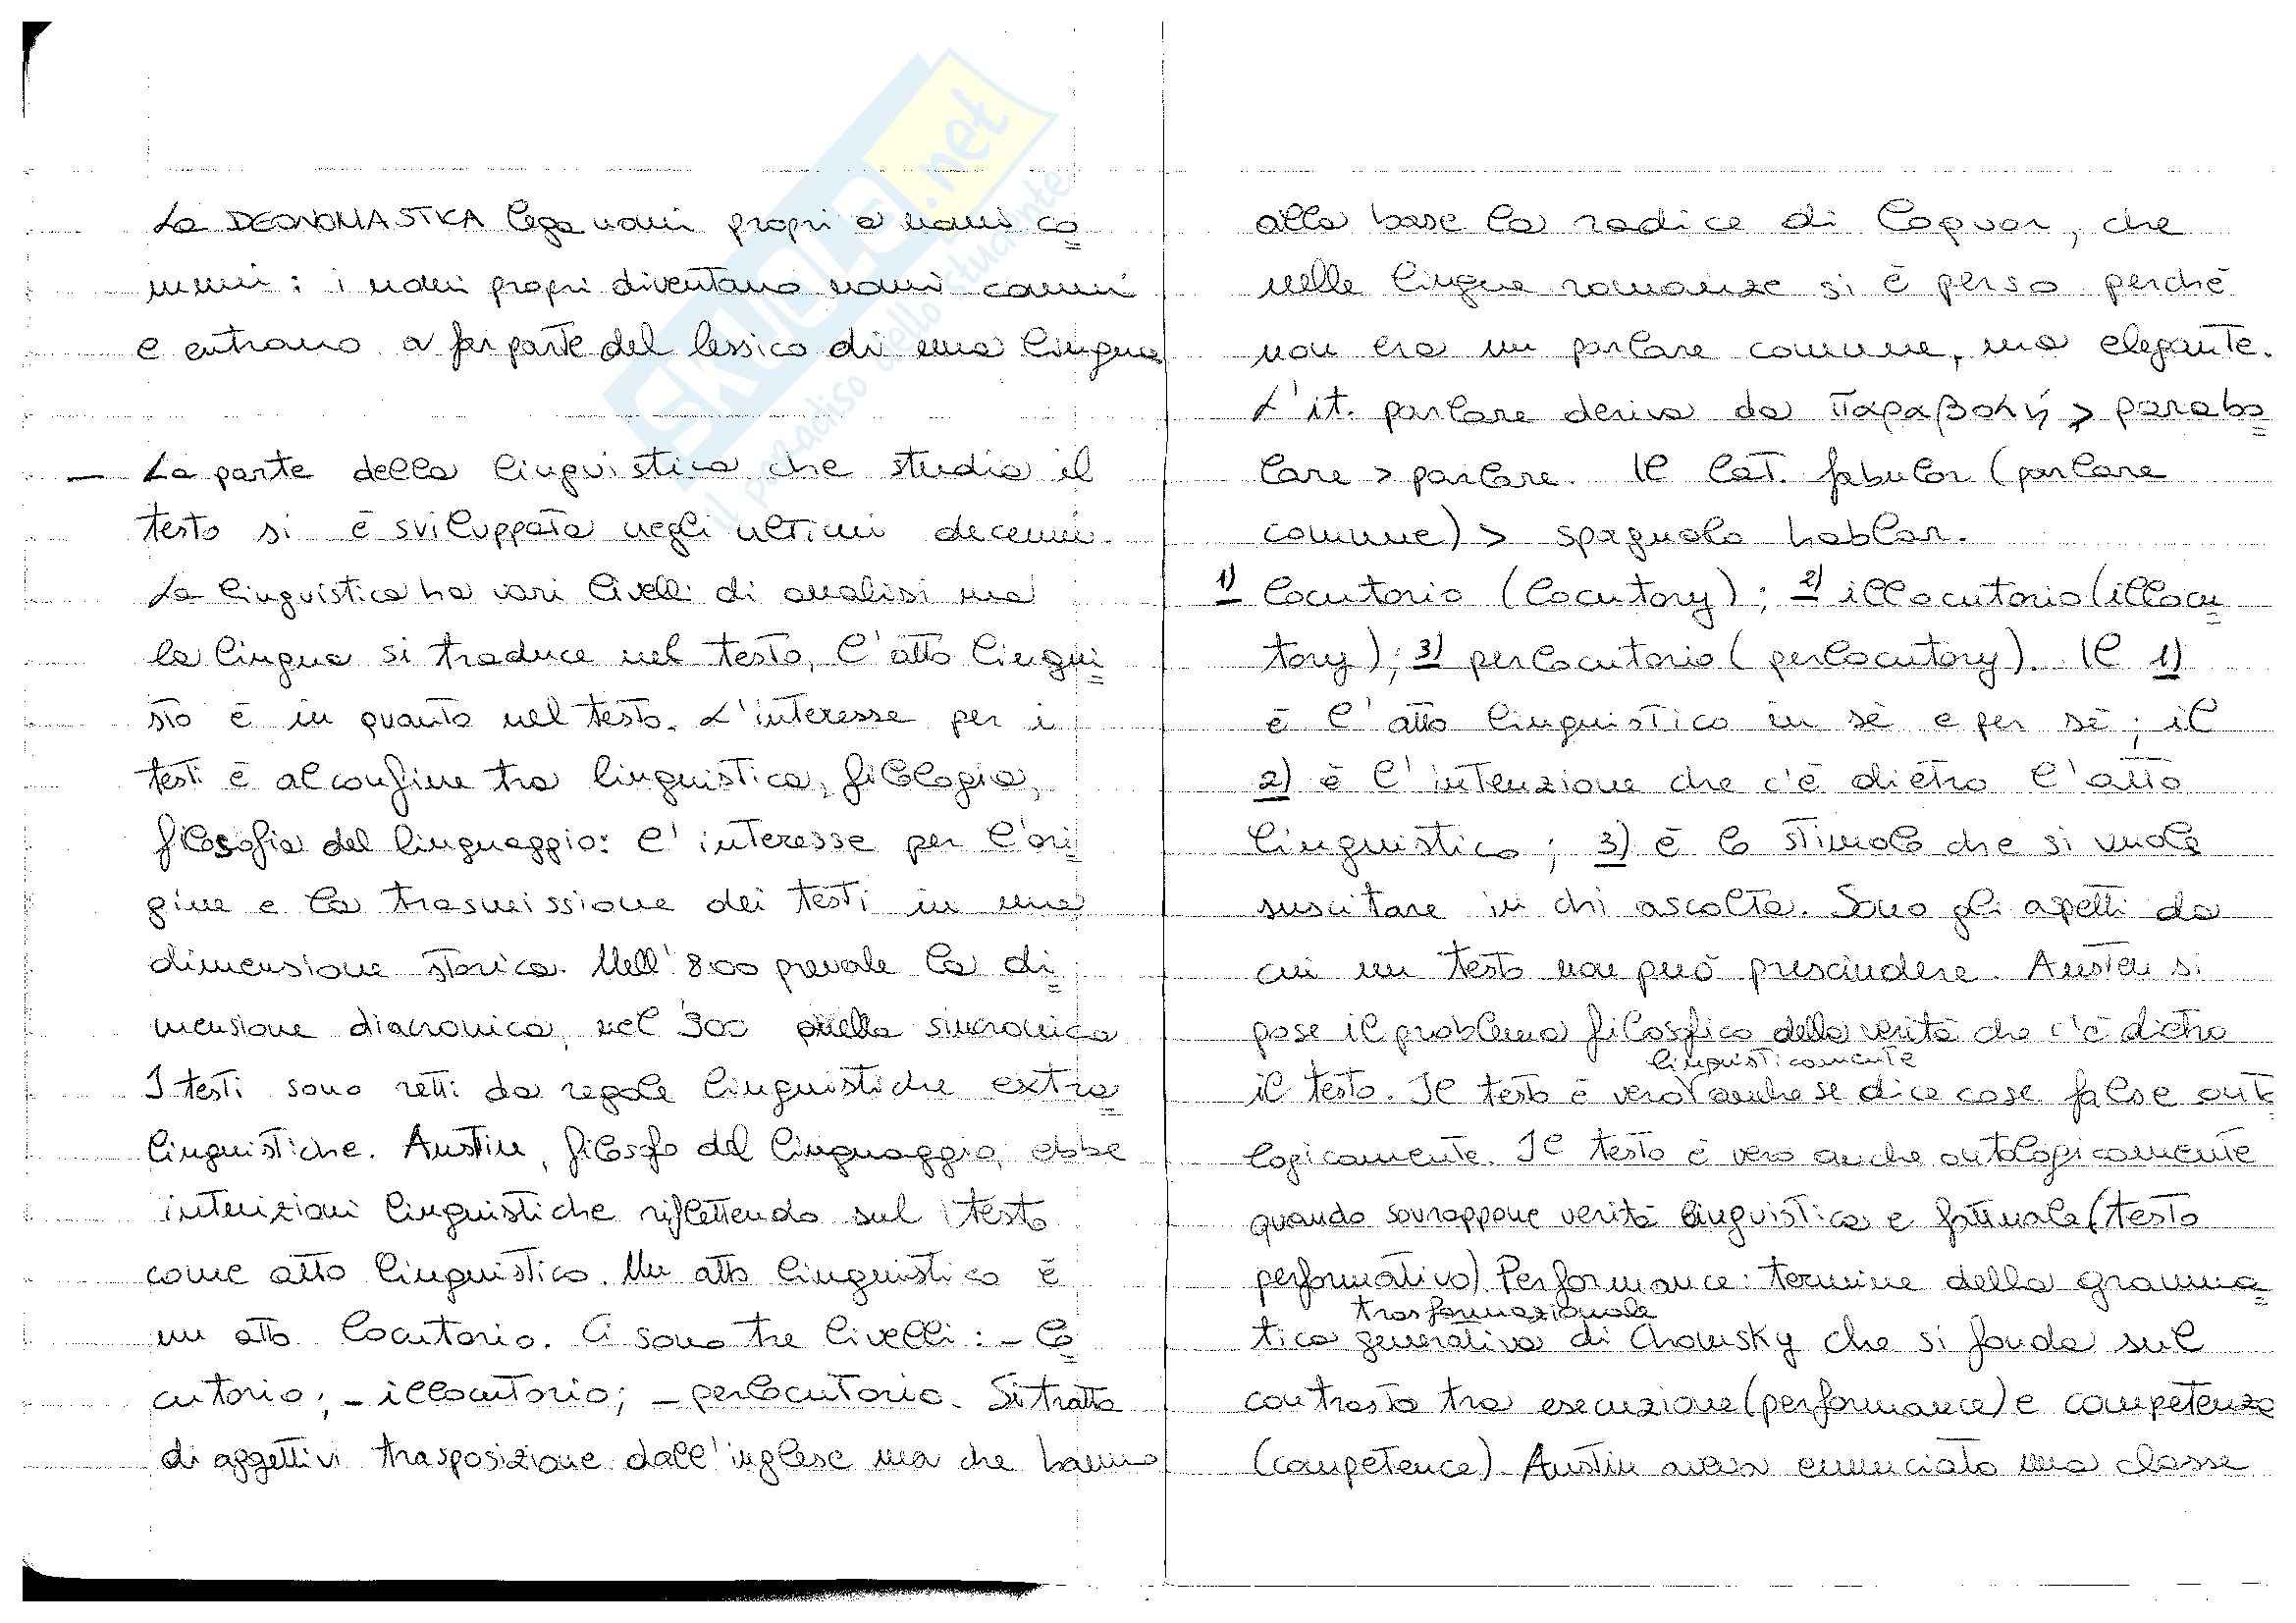 La DEONOMASTICA lega nomi propri a nomi co=
muni: i nomi propri diventano nomi comuni
e entrano a far parte del lessico di una lingua
– La parte della linguistica che studia il
testo si è sviluppata negli ultimi decenni.
La linguistica ha vari livelli di analisi ma
la lingua si traduce nel testo, l'atto lingui=
sto è in quanto nel testo. L'interesse per i
testi è al confine tra linguistica, filologia,
filosofia del linguaggio: l'interesse per l'ori=
gine e la trasmissione dei testi in una
dimensione storica. Nell'800 prevale la di=
mensione diacronica, nel '900 quella sincronica
I testi sono retti da regole linguistiche extra=
linguistiche. Austin, filosofo del linguaggio, ebbe
intuizioni linguistiche riflettendo sul testo
come atto linguistico. Un atto linguistico è
un atto locutorio. Ci sono tre livelli: – lo=
cutorio; – illocutorio; – perlocutorio. Si tratta
di aggettivi trasposizione dall'inglese ma che hanno
alla base la radice di loquor, che
nelle lingue romanze si è perso perché
non era un parlare comune, ma elegante.
L'it. parlare deriva da παραβολή > parabo=
lare > parlare. Il lat. fabulor (parlare
comune) > spagnolo hablar.
1) locutorio (locutory); 2) illocutorio (illocu=
tory); 3) perlocutorio (perlocutory). Il 1)
è l'atto linguistico in sé e per sé; il
2) è l'intenzione che c'è dietro l'atto
linguistico; 3) è lo stimolo che si vuole
suscitare in chi ascolta. Sono gli aspetti da
cui un testo non può prescindere. Austin si
pose il problema filosofico della verità che c'è dietro
linguisticamente
il testo. Il testo è vero anche se dice cose false onto
logicamente. Il testo è vero anche ontologicamente
quando sovrappone verità linguistica e fattuale (testo
performativo) Performance: termine della gramma=
trasformazionale
tica generativa di Chomsky che si fonda sul
contrasto tra esecuzione (performance) e competenza
(competence) Austin aveva enunciato una classe
SKUOLA.net
il paradiso dello studente